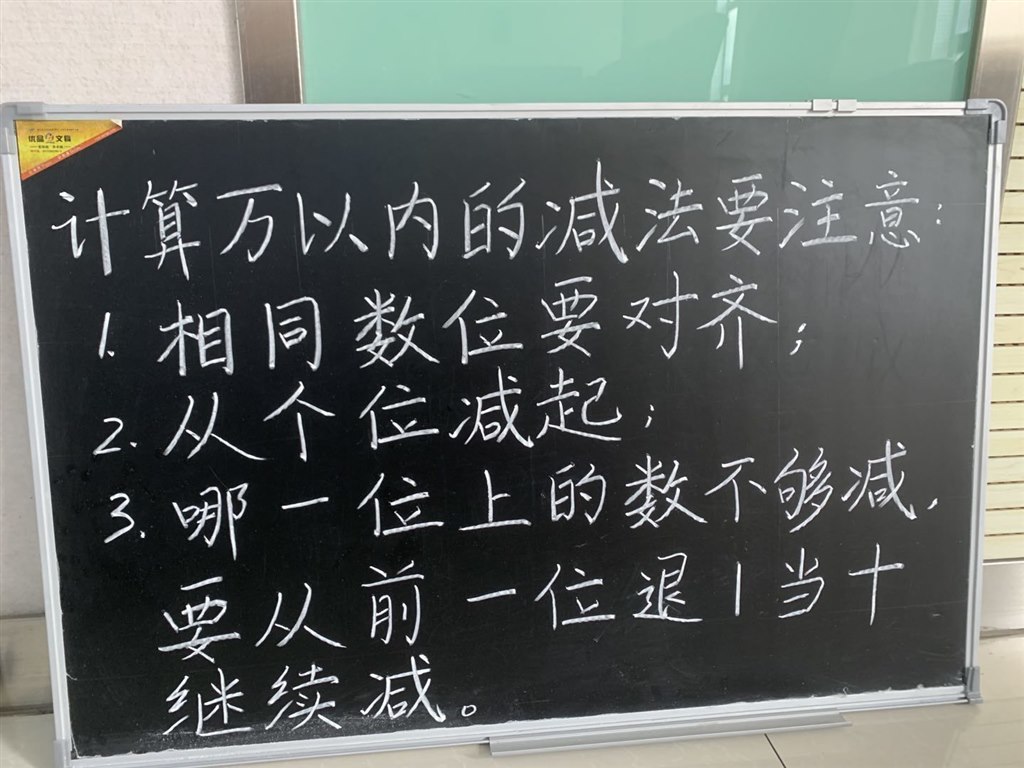 优品文具
计算万以内的减法要注意:
1. 相同数位要对齐;
2. 从个位减起;
3. 哪一位上的数不够减,
要从前一位退1当十
继续减。